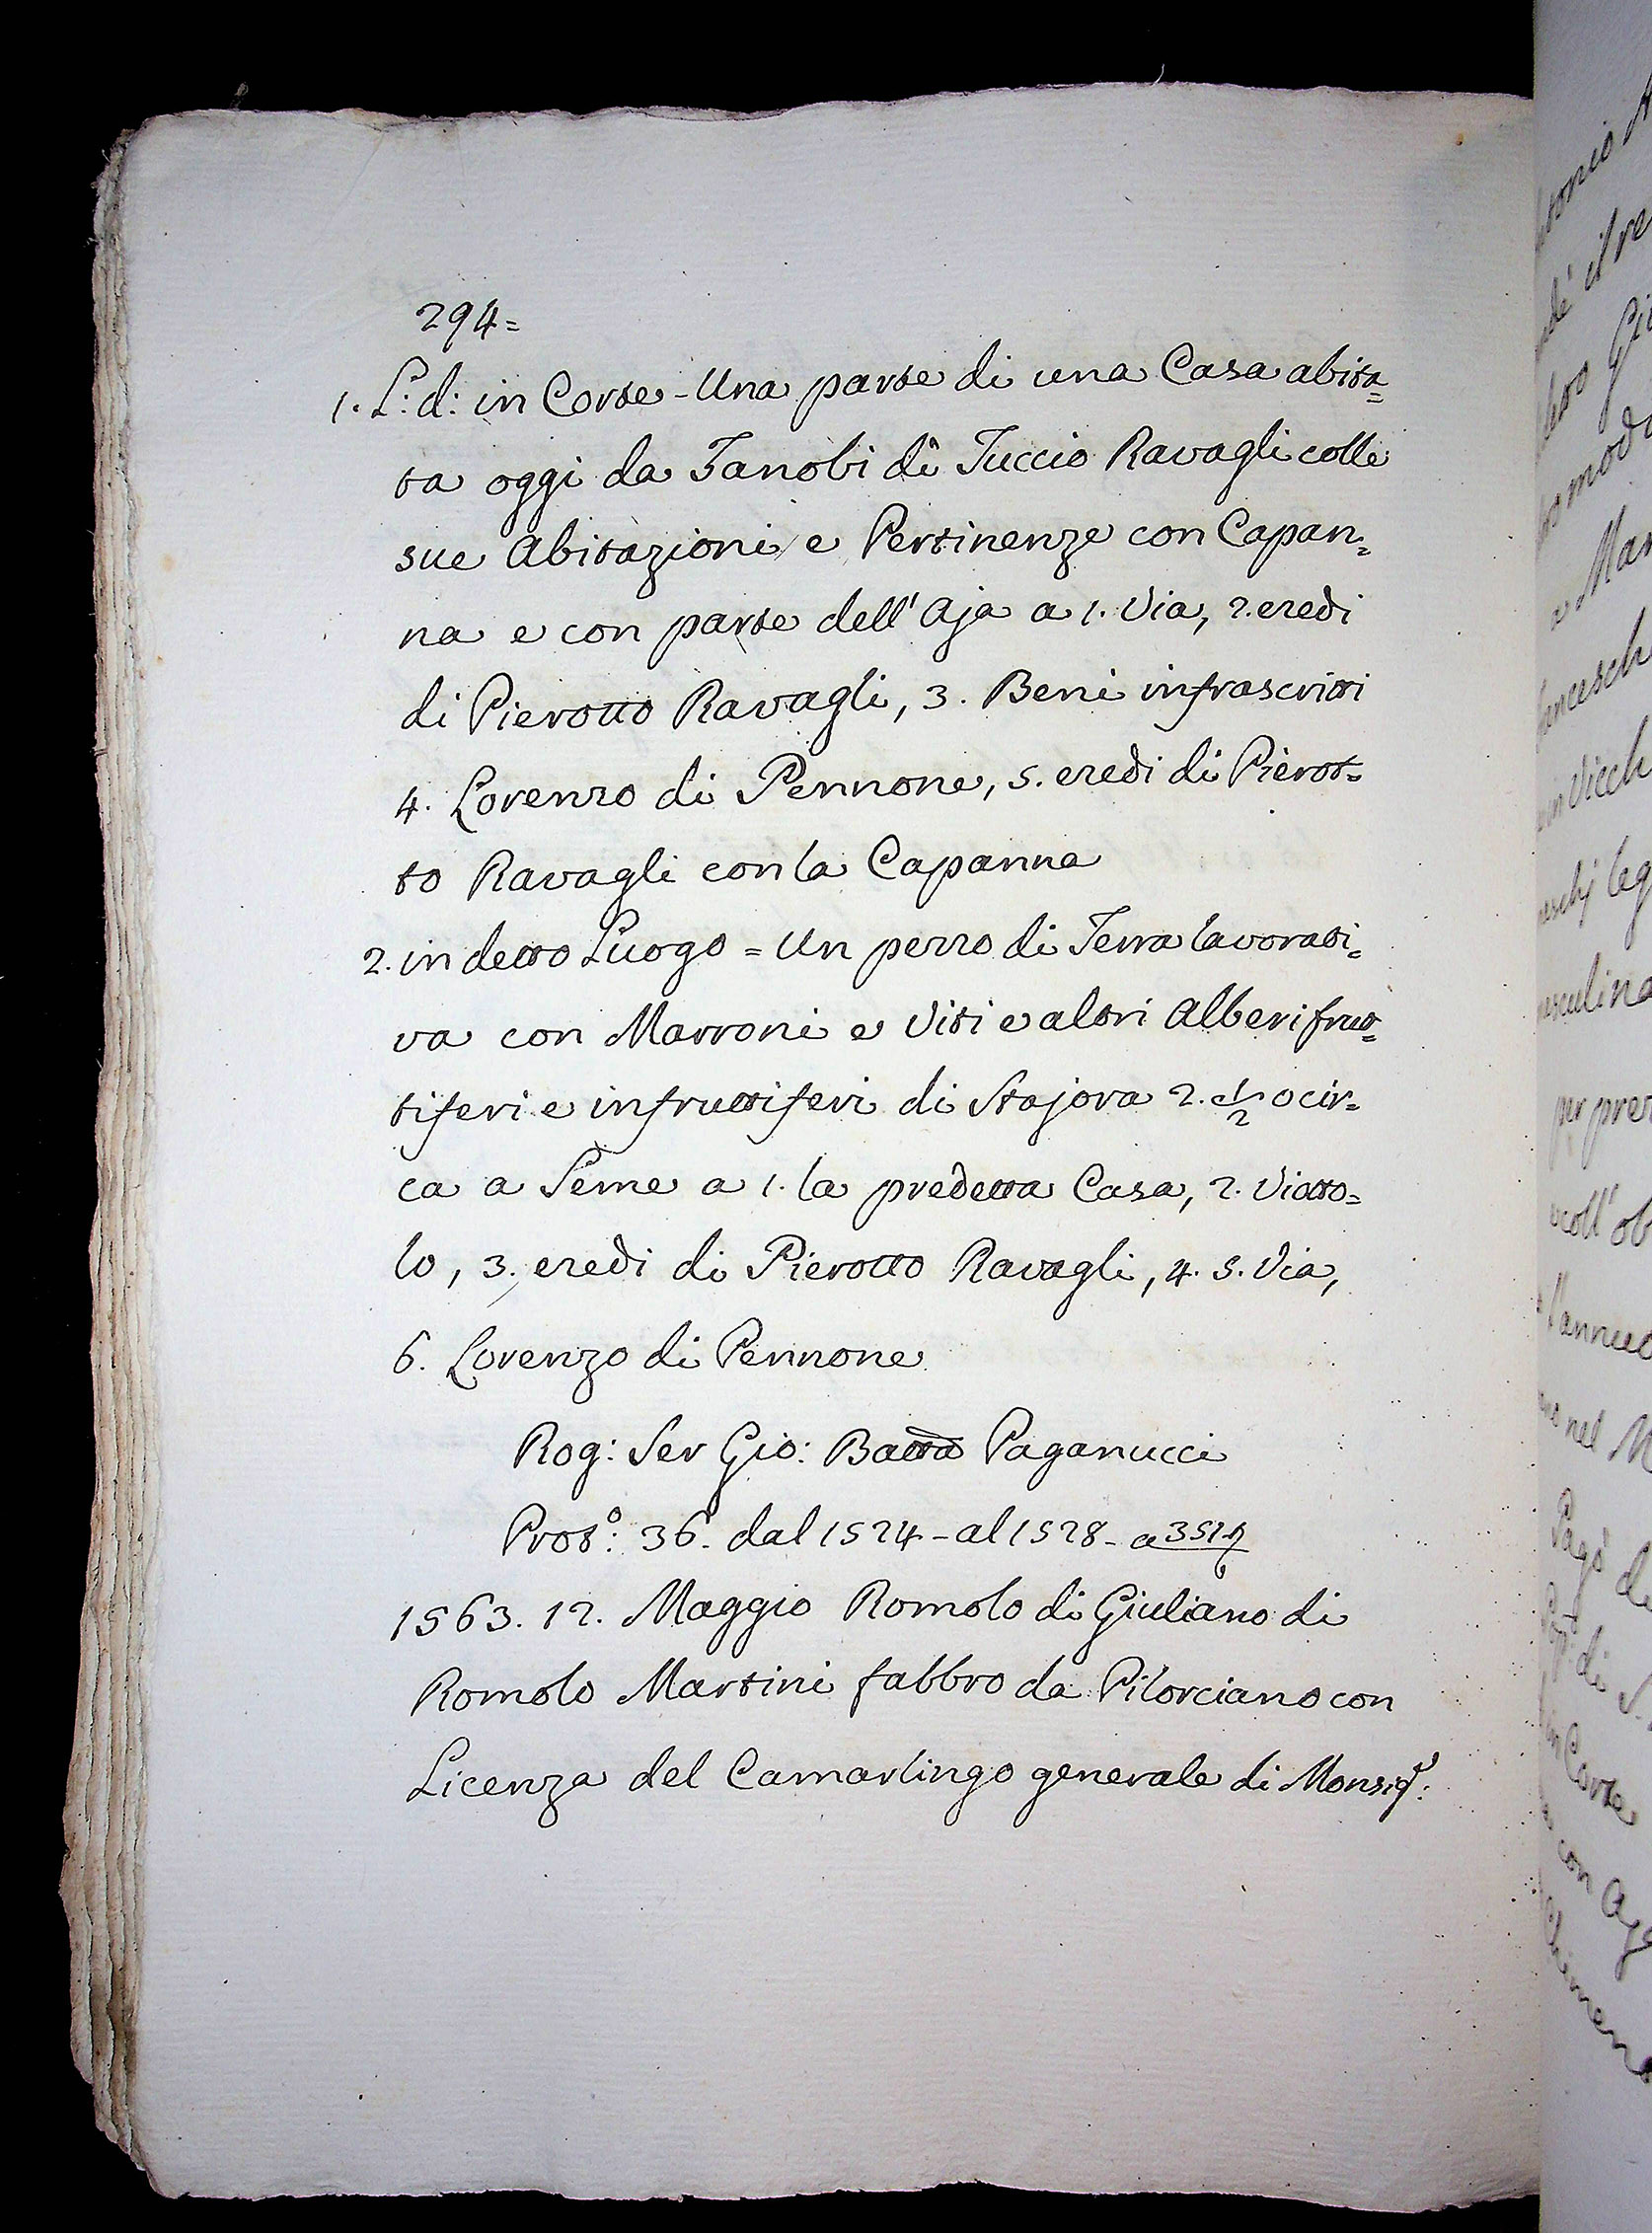 294=
1. L: d: in Corte - Una parte di una Casa abita=
ta oggi da Zanobi di Tuccio Ravagli colle
sue Abitazioni e Pertinenze con Capan=
na e con parte dell' Aja a 1. Via, 2. eredi
di Pierotto Ravagli, 3. Beni infrascritti
4. Lorenzo di Pennone, 5. eredi di Pierot=
to Ravagli con la Capanna
2. in detto Luogo = Un pezzo di Terra lavorati=
va con Marroni e Viti e altri Alberi frut=
tiferi e infruttiferi di Stajora 2. 1/2 o cir=
ca a Seme a 1. la predetta Casa, 2. Viotto=
lo, 3. eredi di Pierotto Ravagli, 4. 5. Via,
6. Lorenzo di Pennone
Rog: Ser Gio: Batta Paganucci
Prot.º: 36. dal 1524 - al 1528 - a
1563. 12. Maggio Romolo di Giuliano di
Romolo Martini fabbro da Pilorciano con
Licenza del Camarlingo generale di Monsig.r: